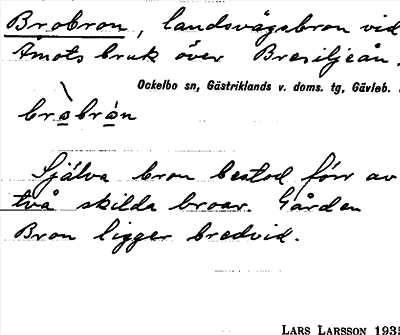 Brobron, landsvägsbron vid
Åmots bruk över Bresiljeån.
Ockelbo sn, Gästriklands v. doms. tg, Gävleb.
bro̲bro̲n
Själva bron bestod förr av
två skilda broar. Gården
Bron ligger bredvid.
LARS LARSSON 193